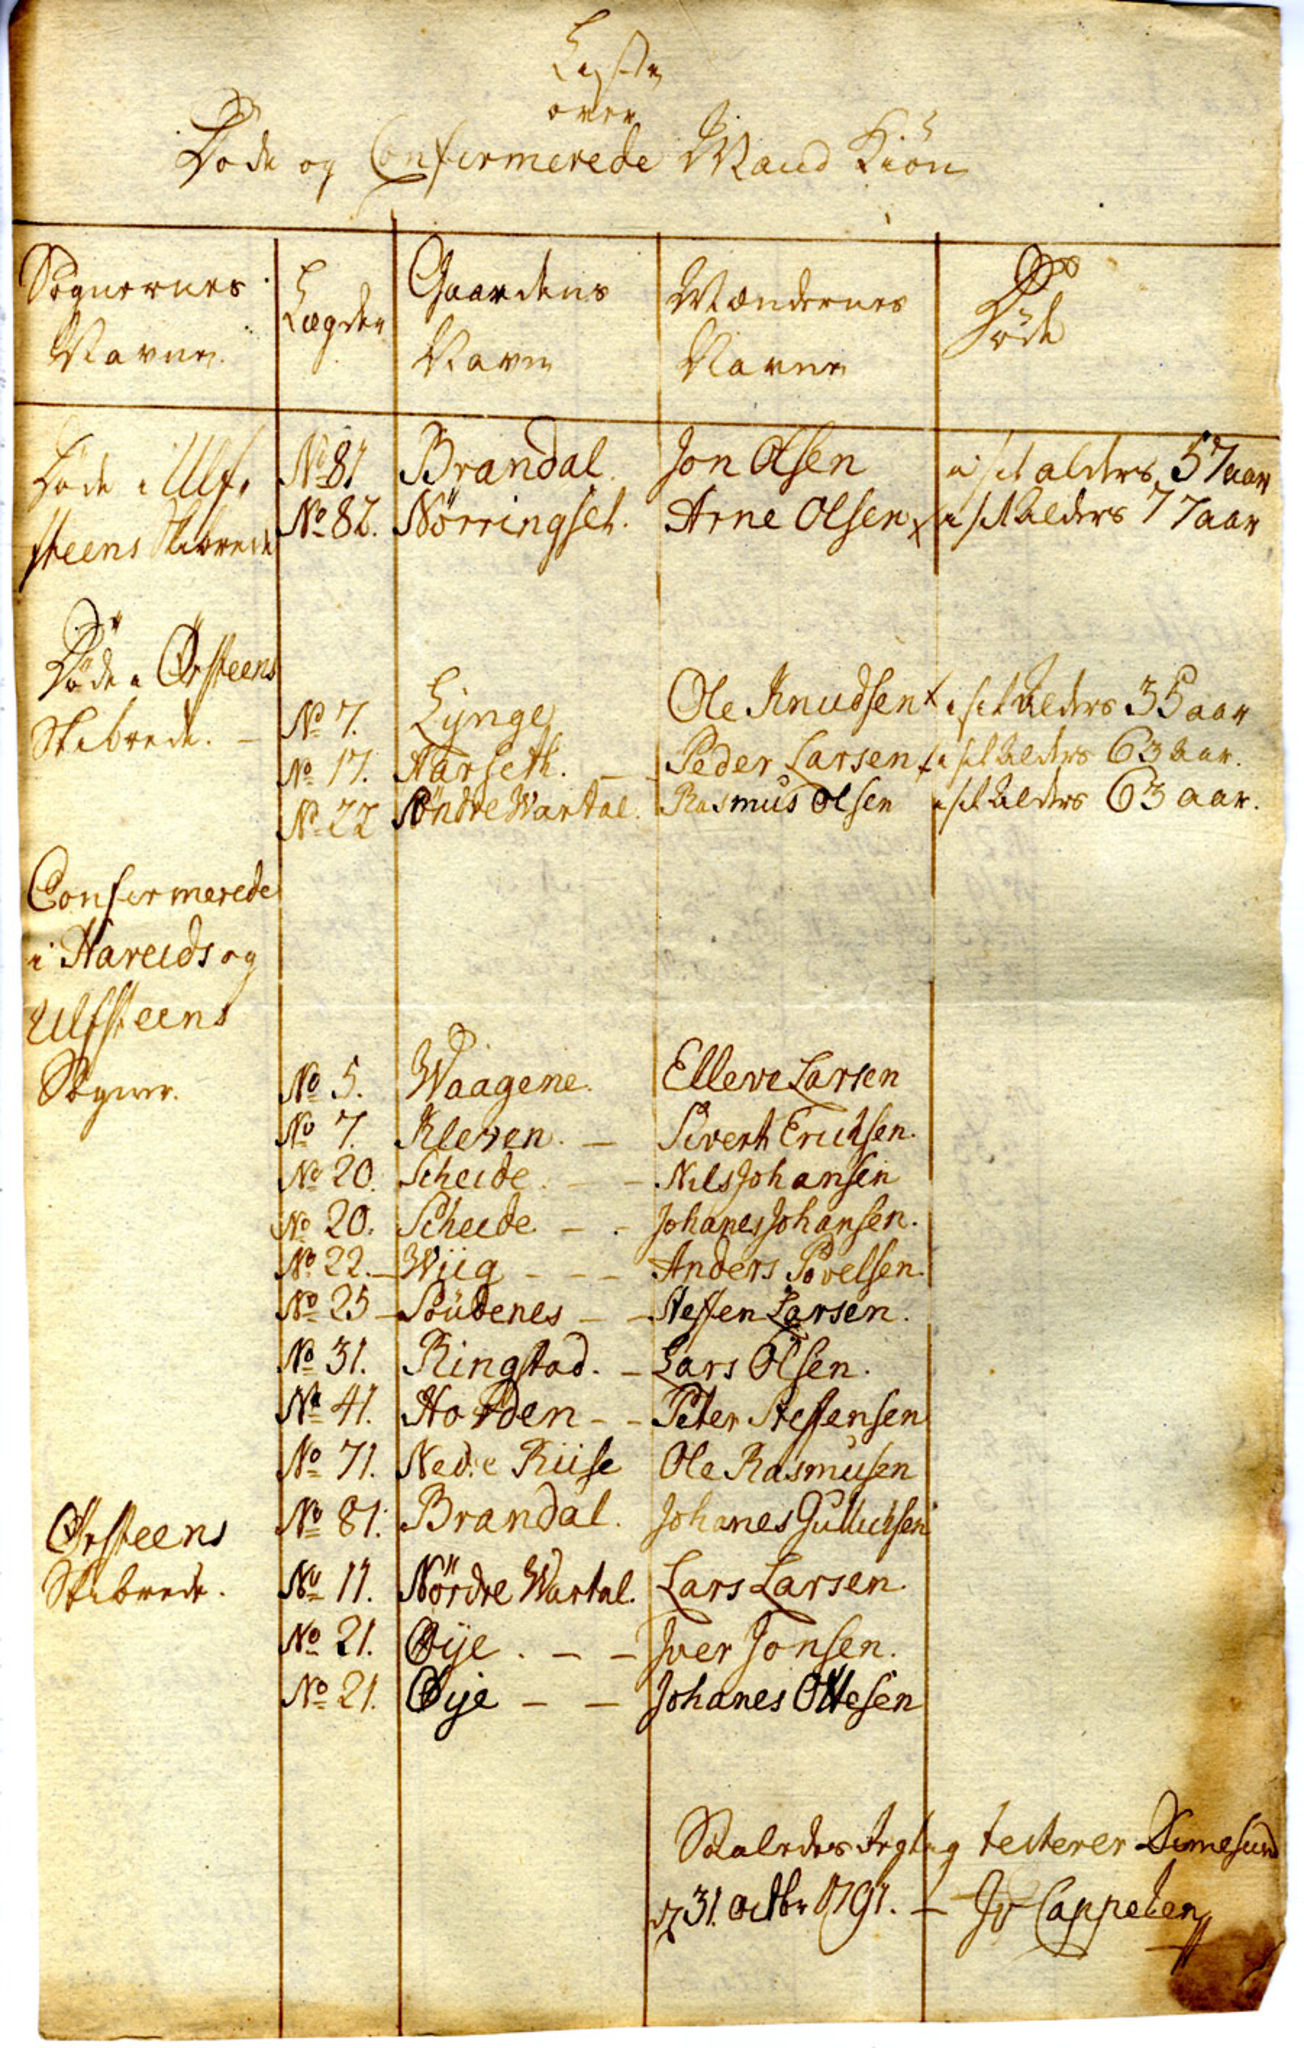 Liste
over
Døde og Confirmerede Mand Kiön
Sognernes Navne. Lægder Gaardens Navn Mændernes Navne Døde
Døde i Ulf, No 81 Brandal. Jon Olsen i sit alders 57 aar
steens Skibrede No 82. Nörringset. Arne Olsen x i sit Alders 77 aar
Døde i Ørsteens
Skibrede. - No 7. Lynge Ole Knudsen x i sit Alders 35 aar
No 17. Aarseth. - Peder Larsen x i sit Alders 63 aar.
No 22 Söndre Wartal. Rasmus Olsen i sit Alders 63 aar.
Confirmerede
i Hareids og
Ulfsteens
Sogner. No 5. Waagene. Elleve Larsen
No 7. Kleven. - Sivert Ericksen.
No 20. Scheide. - - Nils Johansen
No 20. Scheide - - Johanes Johansen.
No 22. - Wiig - - - Anders Povelsen.
No 25 - Soüdenes - - Steffen Larsen.
No 31. Ringstad. - Lars Olsen.
No 41. Hovden - - Peter Steffensen
No 71. Nedre Riise Ole Rasmusen
Ørsteens No 81. Brandal. Johanes Gullichsen
Skibrede. No 11. Nördre Wartal. Lars Larsen.
No 21. Øije. - - Iver Jonsen.
No 21. Øije - - Johanes Ottesen
Saaledes Rigtig testerer Dimesund
d 31. octbr 1791. - Jv Cappelen